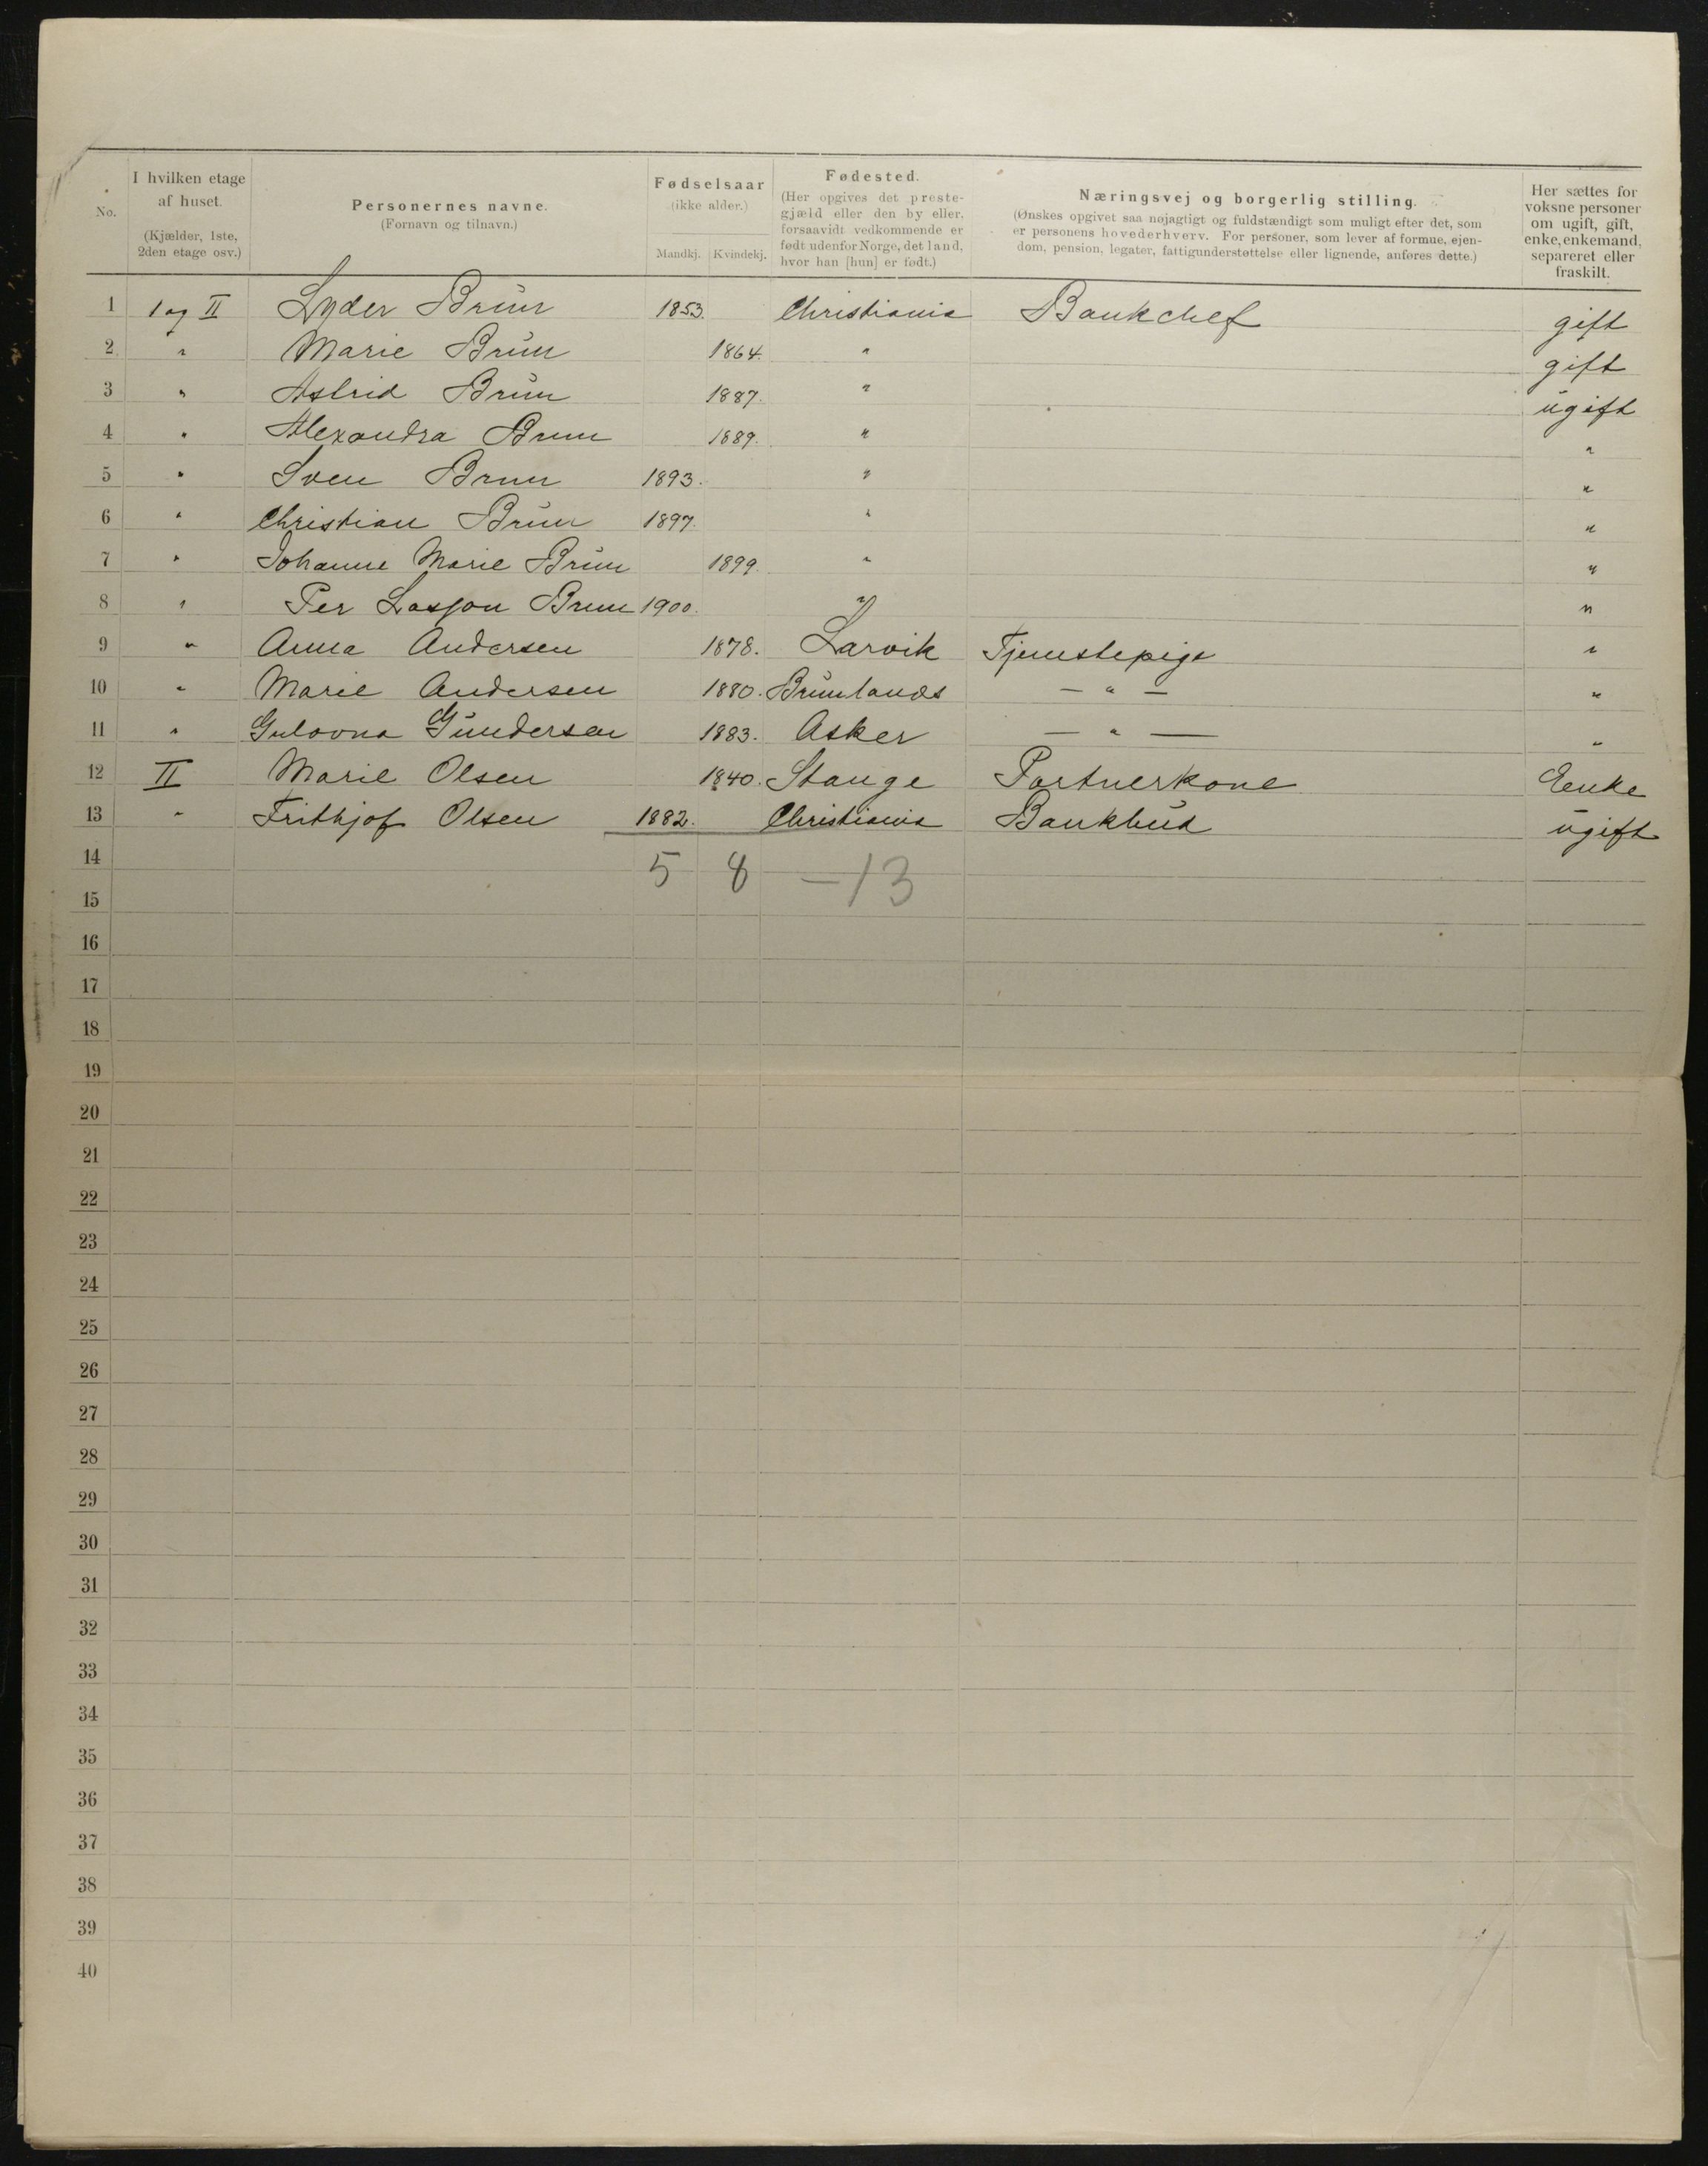 No.
I hvilken etage af huset. (Kjælder, 1ste, 2den etage osv.)
Personernes navne. (Fornavn og tilnavn.)
Fødselsaar (ikke alder.) Mandkj. Kvindekj.
Fødested. (Her opgives det prestegjæld eller den by eller, forsaavidt vedkommende er født udenfor Norge, det land, hvor han [hun] er født.)
Næringsvej og borgerlig stilling. (Ønskes opgivet saa nøjagtigt og fuldstændigt som muligt efter det, som er personens hovederhverv. For personer, som lever af formue, ejendom, pension, legater, fattigunderstøttelse eller lignende, anføres dette.)
Her sættes for voksne personer om ugift, gift, enke, enkemand, separeret eller fraskilt.
1 1 og II Lyder Brun 1853. Christiania Bankchef gift
2 " Marie Brun 1864. " gift
3 " Astrid Brun 1887. " ugift
4 " Alexandra Brun 1889. " "
5 " Sven Brun 1893. " "
6 " Christian Brun 1897. " "
7 " Johanne Marie Brun 1899. " "
8 " Per Lasson Brun 1900. " "
9 " Anna Andersen 1878. Larvik Tjenestepige "
10 " Marie Andersen 1880. Brunlanæs — " — "
11 " Gulovna Gundersen 1883. Asker — " — "
12 II Marie Olsen 1840. Stange Portnerkone Enke
13 " Frithjof Olsen 1882. Christiania Bankbud ugift
14 5 8 — 13
15
16
17
18
19
20
21
22
23
24
25
26
27
28
29
30
31
32
33
34
35
36
37
38
39
40